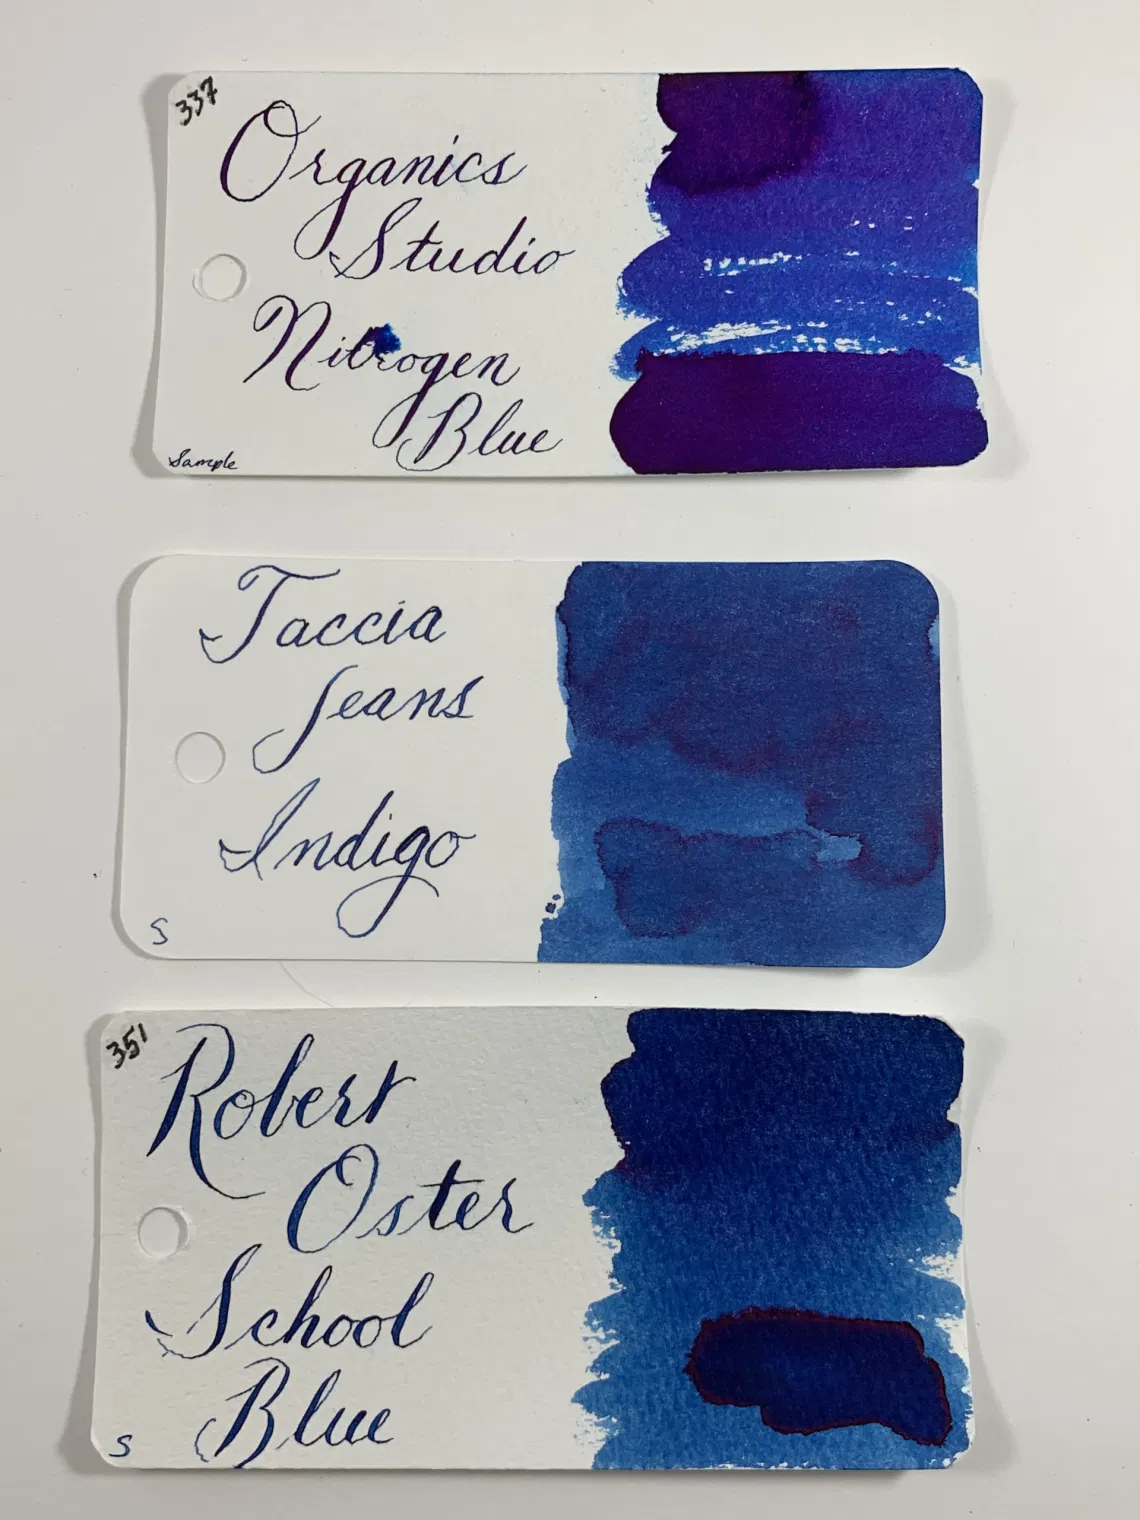 337
Organics
Studio
Nitrogen
Blue
Sample
Taccia
Jeans
Indigo
S
351
Robert
Oster
School
Blue
S